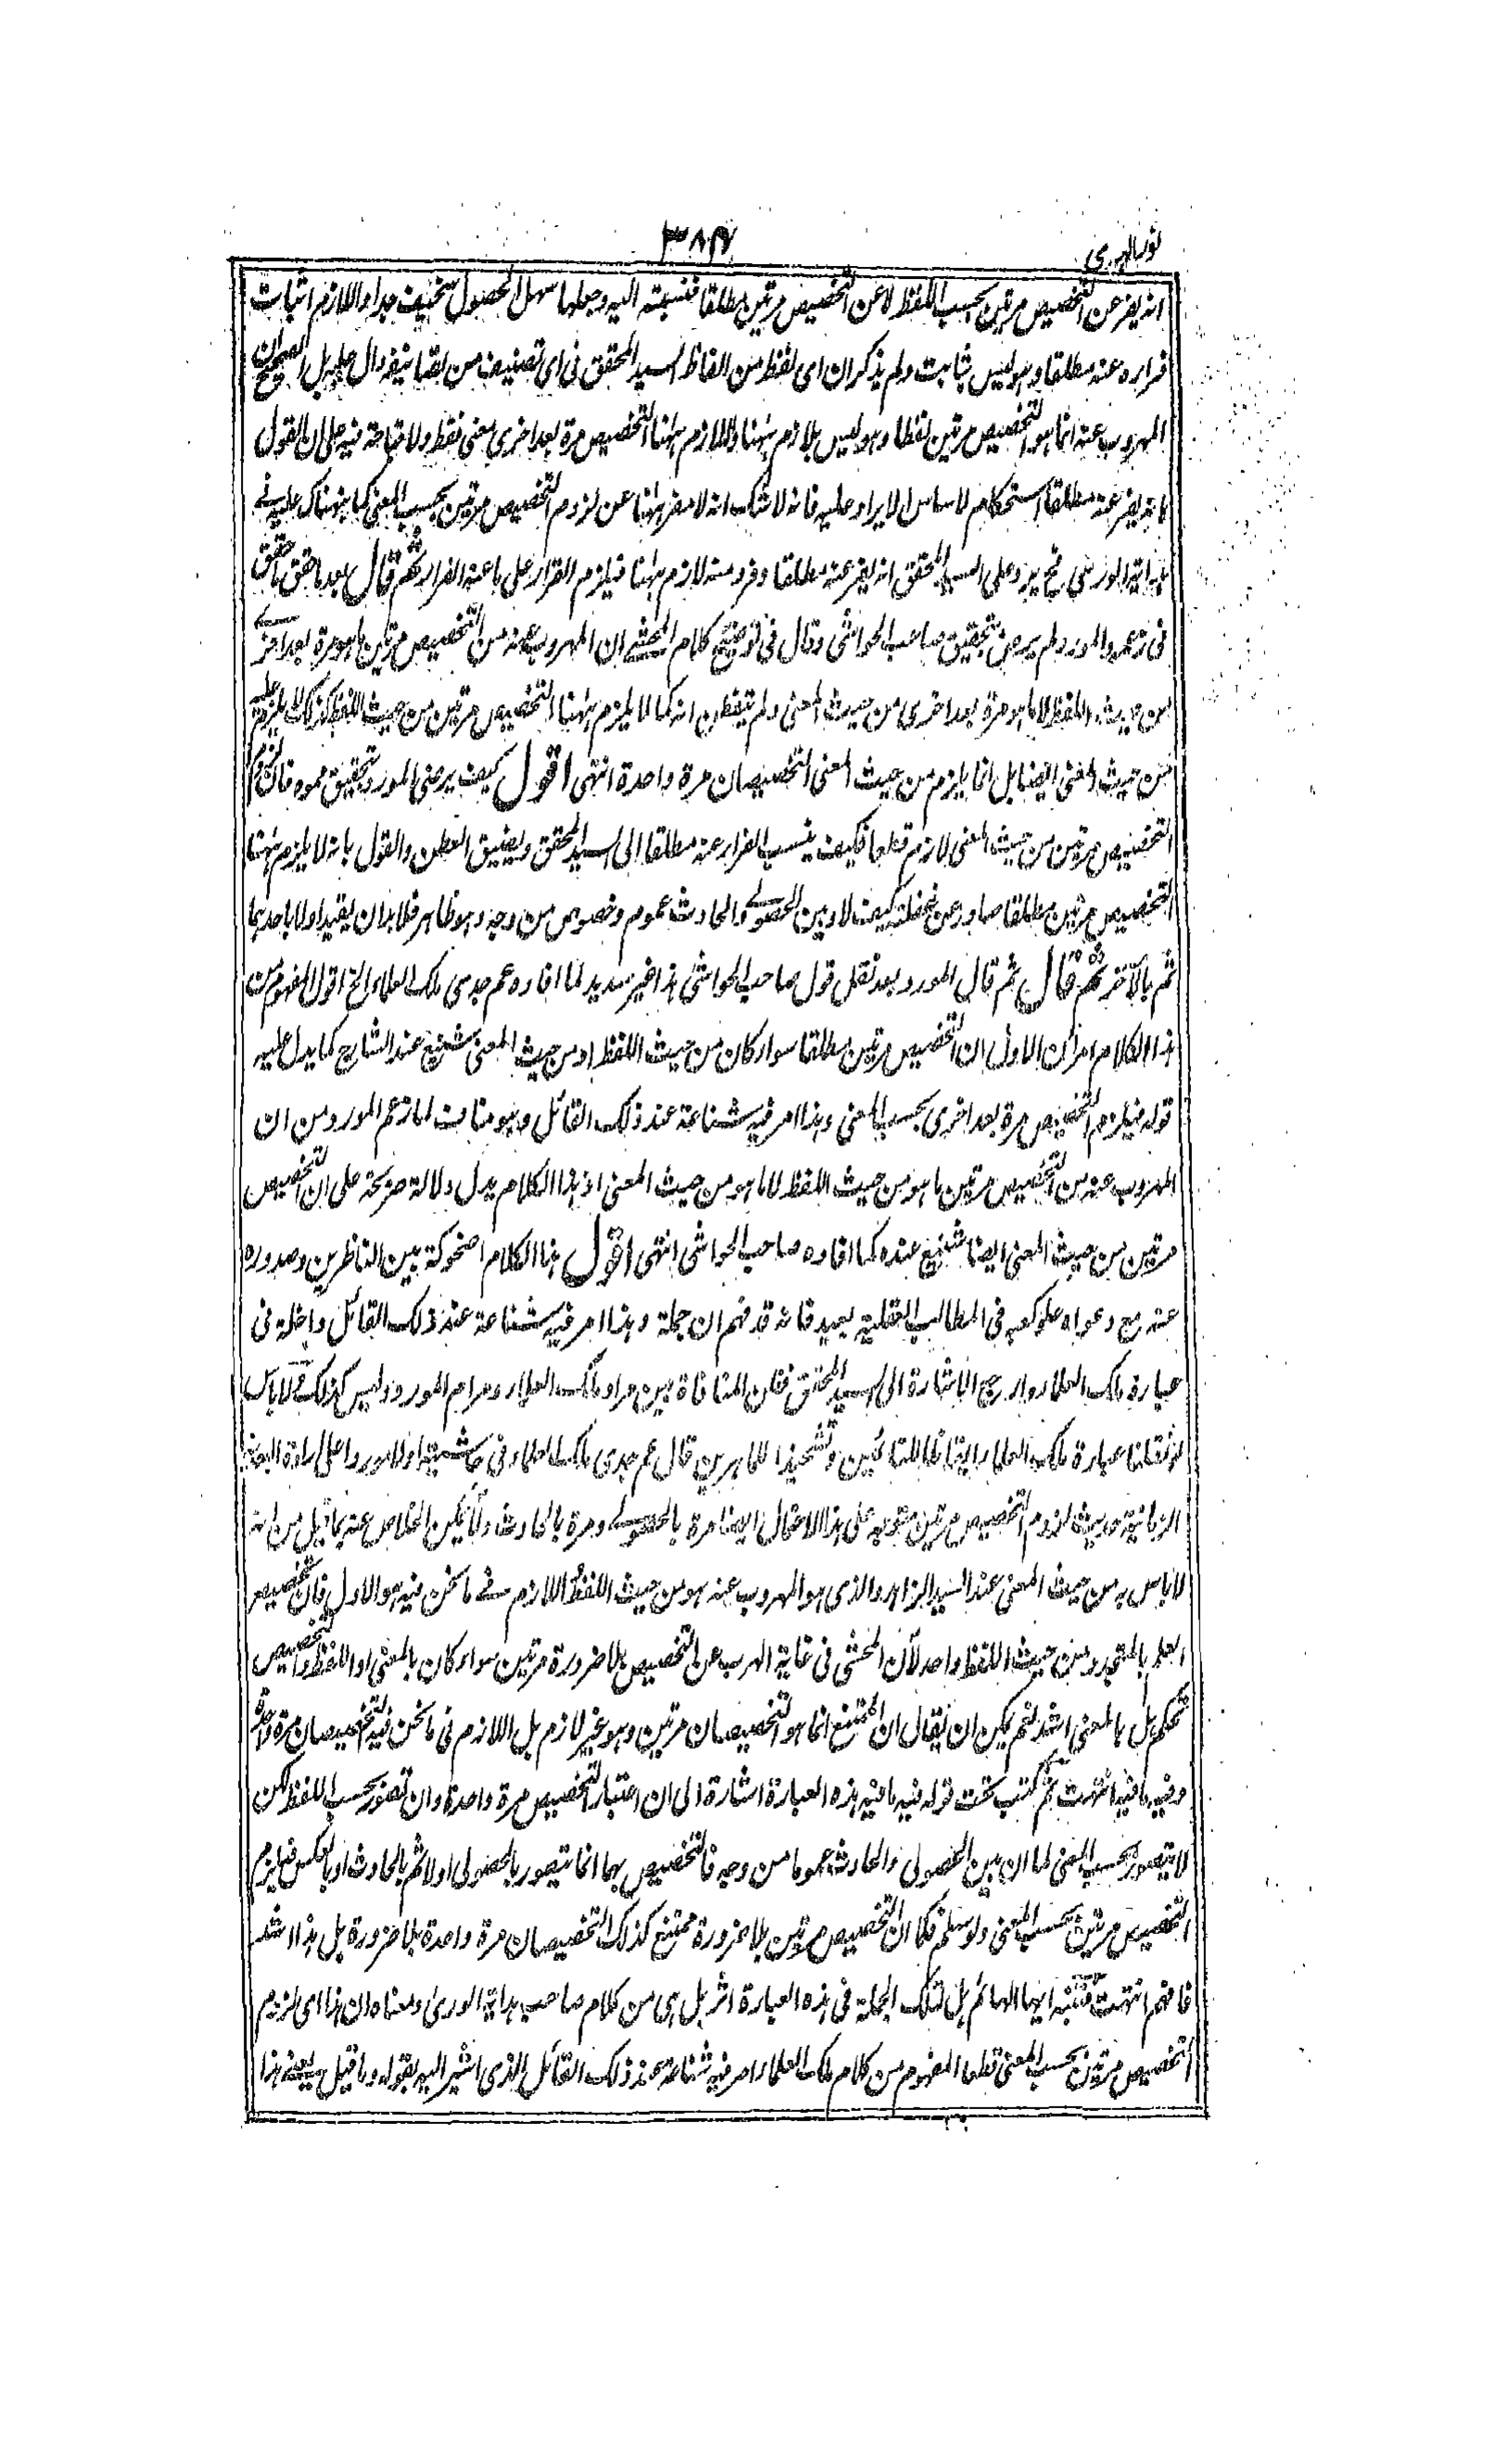 نور الہدی
۳۸۷
انه يفر عن التخصيص مرتين بحسب اللفظ لا عن التخصيص مرتين مطلقا فنسبته اليه وجعلها سهل الحصول سخيف جدا واللازم اثبات
فراره عنه مطلقا وهو ليس بثابت ولم يذكر ان اى لفظ من الفاظ السيد المحقق فى اى تصنيف من تصانيفه دال عليه بل الصحيح ان
المهروب عنه انما هو التخصيص مرتين لفظا وهو ليس بلازم ههنا واللازم ههنا التخصيص مرة بعد اخرى معنى فقط ولا قباحة فيه على ان القول
بانه يفر عنه مطلقا استحكام لاساس الايراد عليه فانه لا شك انه لا مفر ههنا عن لزوم التخصيص مرتين بحسب المعنى كما ينهناك عليه فى
هداية الورى فح يرد على السيد المحقق انه يفر عنه مطلقا وفرد منه لازم ههنا فيلزم القرار على ما عنه الفرار ثم قال بعد ما حقق ما حقق
فى زعمه والمورد لم يرض بتحقيق صاحب الحواشى وقال فى توضيح كلام المحشى ان المهروب عنه من التخصيص مرتين ما هو مرة بعد اخرى
من حيث اللفظ لا ما هو مرة بعد اخرى من حيث المعنى ولم يتفطن انه كما لا يلزم ههنا التخصيص مرتين من حيث اللفظ كذلك لا يلزم عليه
من حيث المعنى ايضا بل انما يلزم من حيث المعنى التخصيصان مرة واحدة انتهى اقول كيف يرضى المورد بتحقيق مموه فان لزوم
التخصيص مرتين من حيث المعنى لازم قطعا فكيف ينسب الفرار عنه مطلقا الى السيد المحقق ويضيق العطن والقول بانه لا يلزم ههنا
التخصيص مرتين مطلقا صادر عن غفلة كيف لا وبين الحصولى والحادث عموم وخصوص من وجه وهو ظاهر فلا بد ان يقيد اولا باحدهما
ثم بالآخر ثم قال ثم قال المورد بعد نقل قول صاحب الحواشى هذا غير سديد لما افاده عم جدى ملك العلماء الخ اقول المفهوم من
هذا الكلام امران الاول ان التخصيص مرتين مطلقا سواء كان من حيث اللفظ او من حيث المعنى شنيع عند الشارح كما يدل عليه
قوله فيلزم التخصيص مرة بعد اخرى بحسب المعنى وهذا امر فيه شناعة عند ذلك القائل وهو مناف لما زعم المورد من ان
المهروب عنه من التخصيص مرتين ما هو من حيث اللفظ لا ما هو من حيث المعنى اذ هذا الكلام يدل دلالة صريحة على ان التخصيص
مرتين من حيث المعنى ايضا شنيع عنده كما افاده صاحب الحواشى انتهى اقول هذا الكلام اضحوكة بين الناظرين وصدوره
عنه مع دعواه علو كعبه فى المطالب العقلية بعيد فانه قد فهم ان جملة وهذا امر فيه شناعة عند ذلك القائل داخلة فى
عبارة ملك العلماء وارجع الاشارة الى السيد المحقق فظن المنافاة بين مراد ملك العلماء ومرام المورد وليس كذلك ولا باس
لو نقلنا عبارة ملك العلماء ايقاظا للنائمين وتشحيذا للماهرين قال عم جدى ملك العلماء فى حاشيته اولا مورد اعلى ارادة البعدية
الزمانية حديث لزوم التخصيص مرتين متوجه على هذا الاحتمال ايضا مرة بالحصولى ومرة بالحادث ولا يمكن الخلاص عنه بما قيل من انه
لا باس به من حيث المعنى عند السيد الزاهد والذى هو المهروب عنه هو من حيث اللفظ واللازم فى ما نحن فيه هو الاول فان تخصيص
العلم بالمتجدد من حيث اللفظ واحد لان المحشى فى غاية الهرب عن التخصيص بلا ضرورة مرتين سواء كان بالمعنى او اللفظ والتخصيص
تحكم بل بالمعنى اشد نعم يمكن ان يقال ان الممتنع انما هو التخصيصان مرتين وهو غير لازم بل اللازم فى ما نحن فيه التخصيصان مرة واحدة
وفيه ما فيه انتهت ثم كتب تحت قوله فيه ما فيه هذه العبارة اشارة الى ان اعتبار التخصيص مرة واحدة وان تصور بحسب اللفظ لكن
لا يتصور بحسب المعنى لما ان بين الحصولى والحادث عموما من وجه فالتخصيص بهما انما يتصور بالحصولى اولا ثم بالحادث او بالعكس فيلزم
التخصيص مرتين بحسب المعنى ولو سلم فكما ان التخصيص مرتين بلا ضرورة ممتنع كذلك التخصيصان مرة واحدة بلا ضرورة بل هذا اشد
فافهم انتهت فتنبه ايها الهائم هل لتلك الجملة فى هذه العبارة اثر بل هى من كلام صاحب هداية الورى ومعناه ان هذا اى لزوم
التخصيص مرتين بحسب المعنى قطعا المفهوم من كلام ملك العلماء امر فيه شناعة عند ذلك القائل الذى اشير اليه بقوله وما قيل يعنى هذا